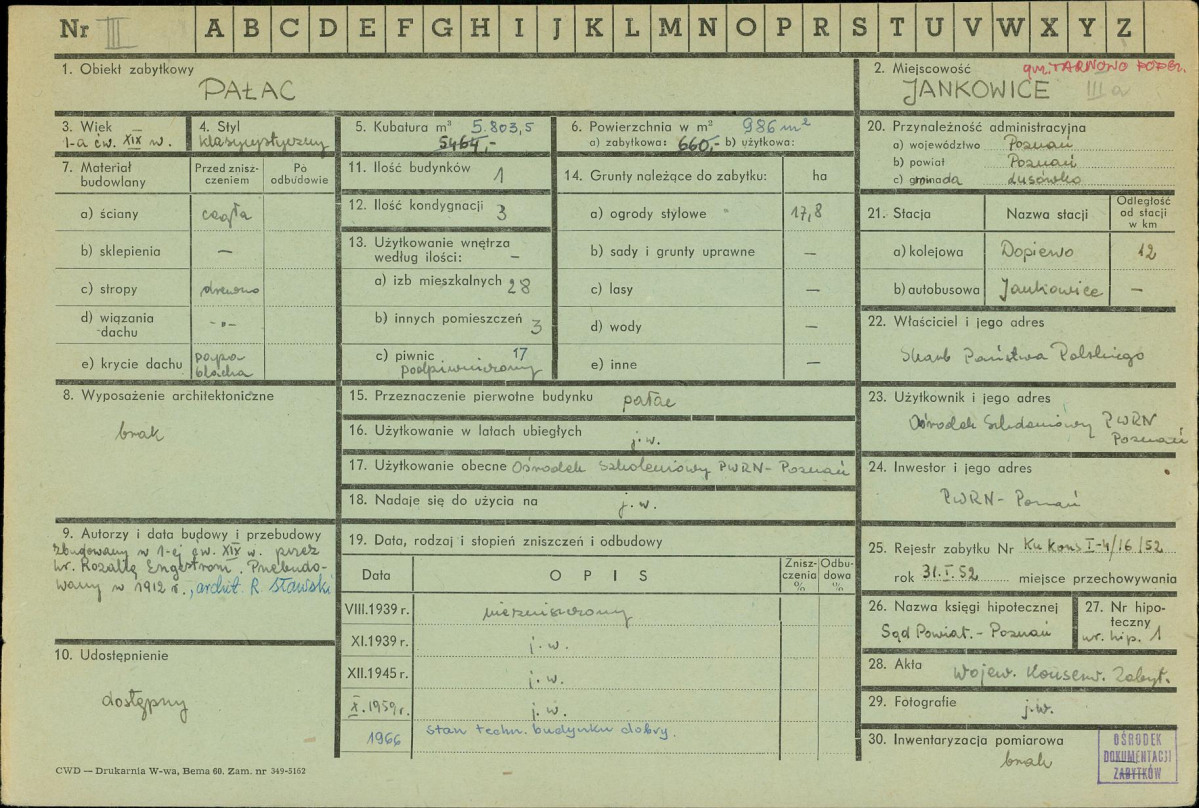 Nr III A B C D E F G H I J K L M N O P R S T U V W X Y Z
1. Obiekt zabytkowy
PAŁAC
2. Miejscowość gm. TARNOWO PODG.
JANKOWICE III a
3. Wiek
1-a ćw. XIX w.
4. Styl
klasycystyczny
5. Kubatura m³ 5.803,5
5464,-
6. Powierzchnia w m² 986 m²
a) zabytkowa: 660,- b) użytkowa:
20. Przynależność administracyjna
a) województwo Poznań
b) powiat Poznań
c) gromada Lusówko
7. Materiał budowlany
Przed zniszczeniem
Po odbudowie
a) ściany cegła
b) sklepienia —
c) stropy drewno
d) wiązania dachu -"-
e) krycie dachu papa blacha
11. Ilość budynków 1
12. Ilość kondygnacji 3
13. Użytkowanie wnętrza
według ilości: —
a) izb mieszkalnych 28
b) innych pomieszczeń 3
c) piwnic 17
podpiwniczony
14. Grunty należące do zabytku: ha
a) ogrody stylowe 17,8
b) sady i grunty uprawne —
c) lasy —
d) wody —
e) inne —
21. Stacja Nazwa stacji Odległość od stacji w km
a) kolejowa Dopiewo 12
b) autobusowa Jankowice —
22. Właściciel i jego adres
Skarb Państwa Polskiego
8. Wyposażenie architektoniczne
brak
15. Przeznaczenie pierwotne budynku pałac
16. Użytkowanie w latach ubiegłych j.w.
17. Użytkowanie obecne Ośrodek Szkoleniowy PWRN- Poznań
18. Nadaje się do użycia na j.w.
23. Użytkownik i jego adres
Ośrodek Szkoleniowy PWRN
Poznań
24. Inwestor i jego adres
PWRN- Poznań
9. Autorzy i data budowy i przebudowy
zbudowany w 1-ej ćw. XIX w. przez
hr. Rozalię Engestrom. Przebudo-
wany w 1912 r., archit. R. Sławski
10. Udostępnienie
dostępny
19. Data, rodzaj i stopień zniszczeń i odbudowy
Data OPIS Zniszczenia % Odbudowa %
VIII.1939 r. niezniszczony
XI.1939 r. j.w.
XII.1945 r. j.w.
X.1959 r. j.w.
1966 stan techn. budynku dobry.
25. Rejestr zabytku Nr Ku Kons I-4/16/52
rok 31.I.52 miejsce przechowywania
26. Nazwa księgi hipotecznej
Sąd Powiat. - Poznań
27. Nr hipoteczny
nr. hip. 1
28. Akta Wojew. Konserw. Zabyt.
29. Fotografie j.w.
30. Inwentaryzacja pomiarowa
brak
OŚRODEK
DOKUMENTACJI
ZABYTKÓW
CWD — Drukarnia W-wa, Bema 60. Zam. nr 349-5162